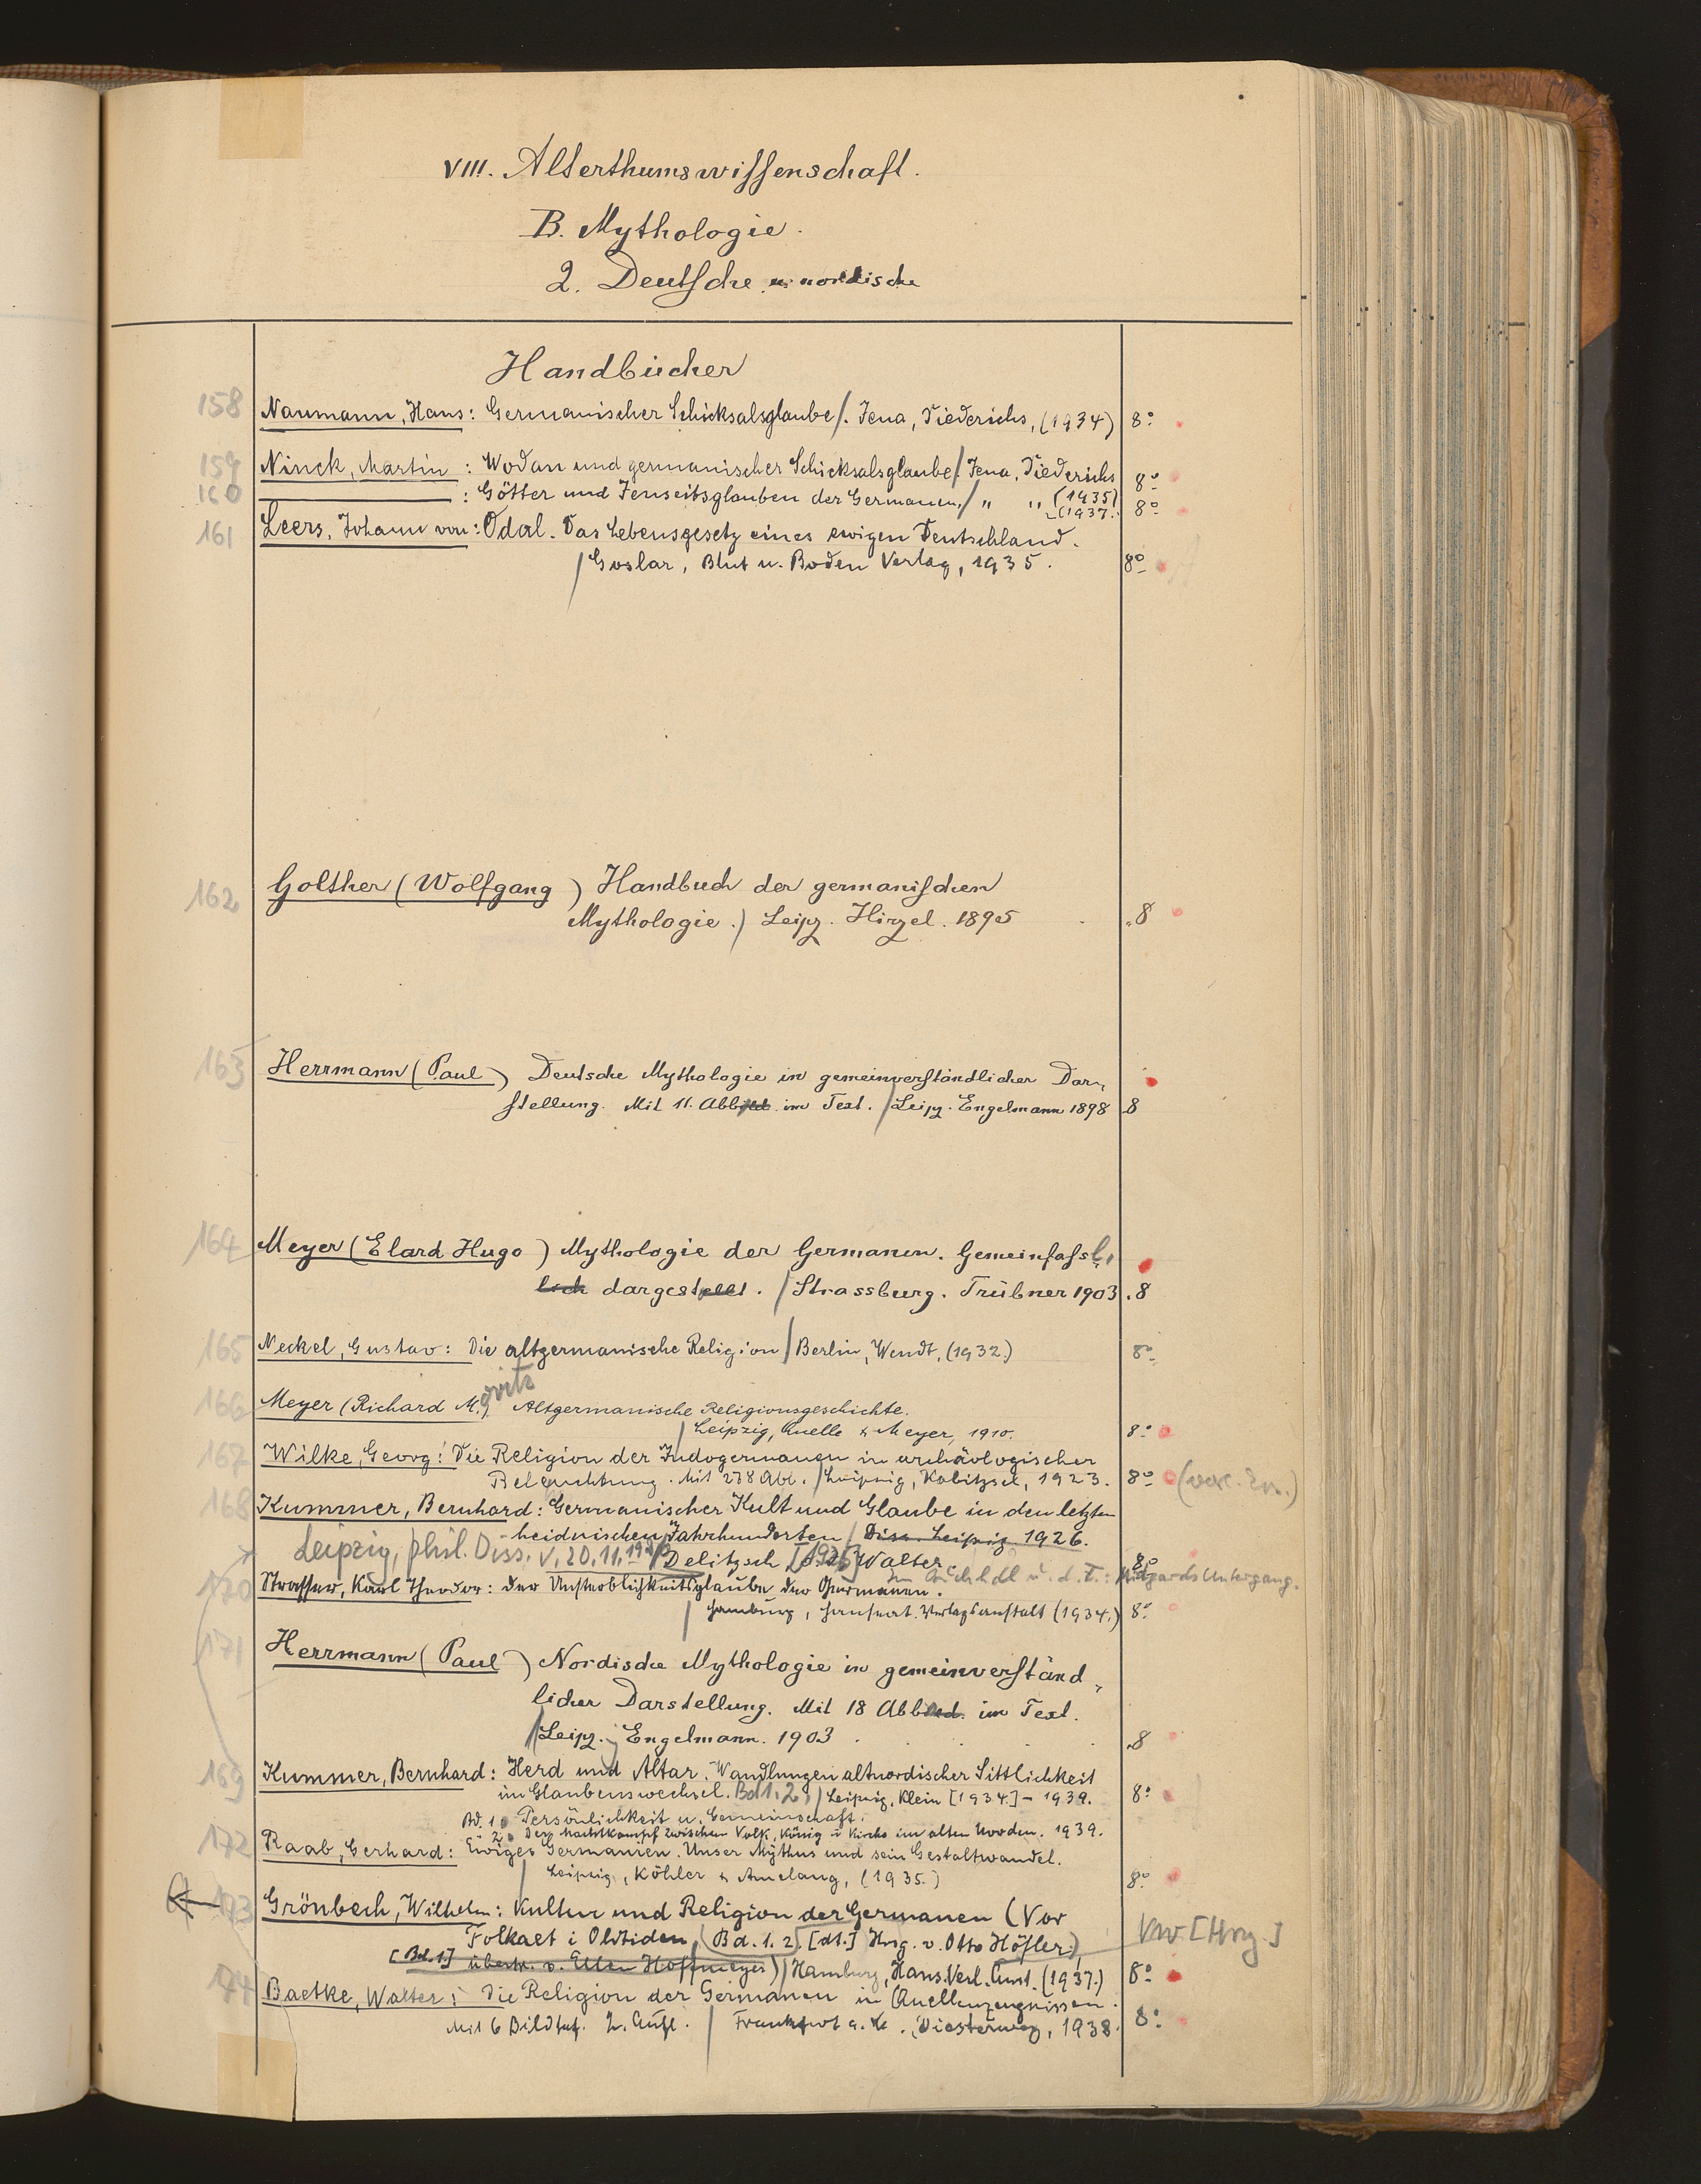 VIII. Alterthumswissenschaft.
B. Mythologie.
2. Deutsche u. nordische
Handbücher
158 Naumann, Hans: Germanischer Schicksalsglaube/. Jena, Diederichs, (1934) 8°
159 Ninck, Martin: Wodan und germanischer Schicksalsglaube/. Jena, Diederichs (1935) 8°
160 : Götter und Jenseitsglauben der Germanen,/ " " (1937. 8°
161 Leers, Johann von: Odal. Das Lebensgesetz eines ewigen Deutschland.
/Goslar, Blut u. Boden Verlag, 1935. 8°
162 Golther (Wolfgang) Handbuch der germanischen
Mythologie./ Leipz. Hirzel. 1895 8
163 Herrmann (Paul) Deutsche Mythologie in gemeinverständlicher Dar-
stellung. Mit 11. Abbild. im Text. /Leipz. Engelmann 1898 8
164 Meyer (Elard Hugo) Mythologie der Germanen. Gemeinfassl.
lich dargestellt. /Strassburg. Trübner 1903. 8
165 Neckel, Gustav: Die altgermanische Religion/Berlin, Wendt, (1932.) 8°
166 Meyer (Richard M.oritz) Altgermanische Religionsgeschichte.
/Leipzig, Quelle & Meyer, 1910. 8°
167 Wilke, Georg: Die Religion der Indogermanen in archäologischer
Beleuchtung. Mit 278 Abb. /Leipzig, Kabitzsch, 1923. 8°
168 Kummer, Bernhard: Germanischer Kult und Glaube in den letzten
heidnischen Jahrhunderten/ Diss. Leipzig. 1926.
Leipzig, phil. Diss. v. 20.11. Delitzsch Walter. 8°
Im Buchhdl u. d. T.: Midgards Untergang.
170 Strasser, Karl Theodor: Der Unsterblichkeitsglaube der Germanen.
/Hamburg, Hanseat. Verlagsanstalt (1934.) 8°
171 Herrmann (Paul) Nordische Mythologie in gemeinverständ-
licher Darstellung. Mit 18 Abbild. im Text.
/Leipz. Engelmann. 1903. 8
169 Kummer, Bernhard: Herd und Altar. Wandlungen altnordischer Sittlichkeit
im Glaubenswechsel. Bd 1.2,/Leipzig, Klein [1934.]-1939. 8°
Bd. 1. Persönlichkeit u. Gemeinschaft.
" 2. Der Machtkampf zwischen Volk, König u. Kirche im alten Norden. 1939.
172 Raab, Gerhard: Ewiges Germanien. Unser Mythus und sein Gestaltwandel.
/Leipzig, Köhler & Amelang, (1935.) 8°
173 Grönbech, Wilhelm: Kultur und Religion der Germanen (Vor
Folkaet i Oldtiden/(Bd. 1.2) [dt.] Hrsg. v. Otto Höfler) Vw [Hrg.]
[Bd. 1] übertr. v. Ellen Hoffmeyer)/Hamburg, Hans. Verl. Anst. (1937.) 8°
174 Baetke, Walter: Die Religion der Germanen in Quellenzeugnissen.
Mit 6 Bildtaf. 2. Aufl. / Frankfurt a. M. Diesterweg, 1938. 8°